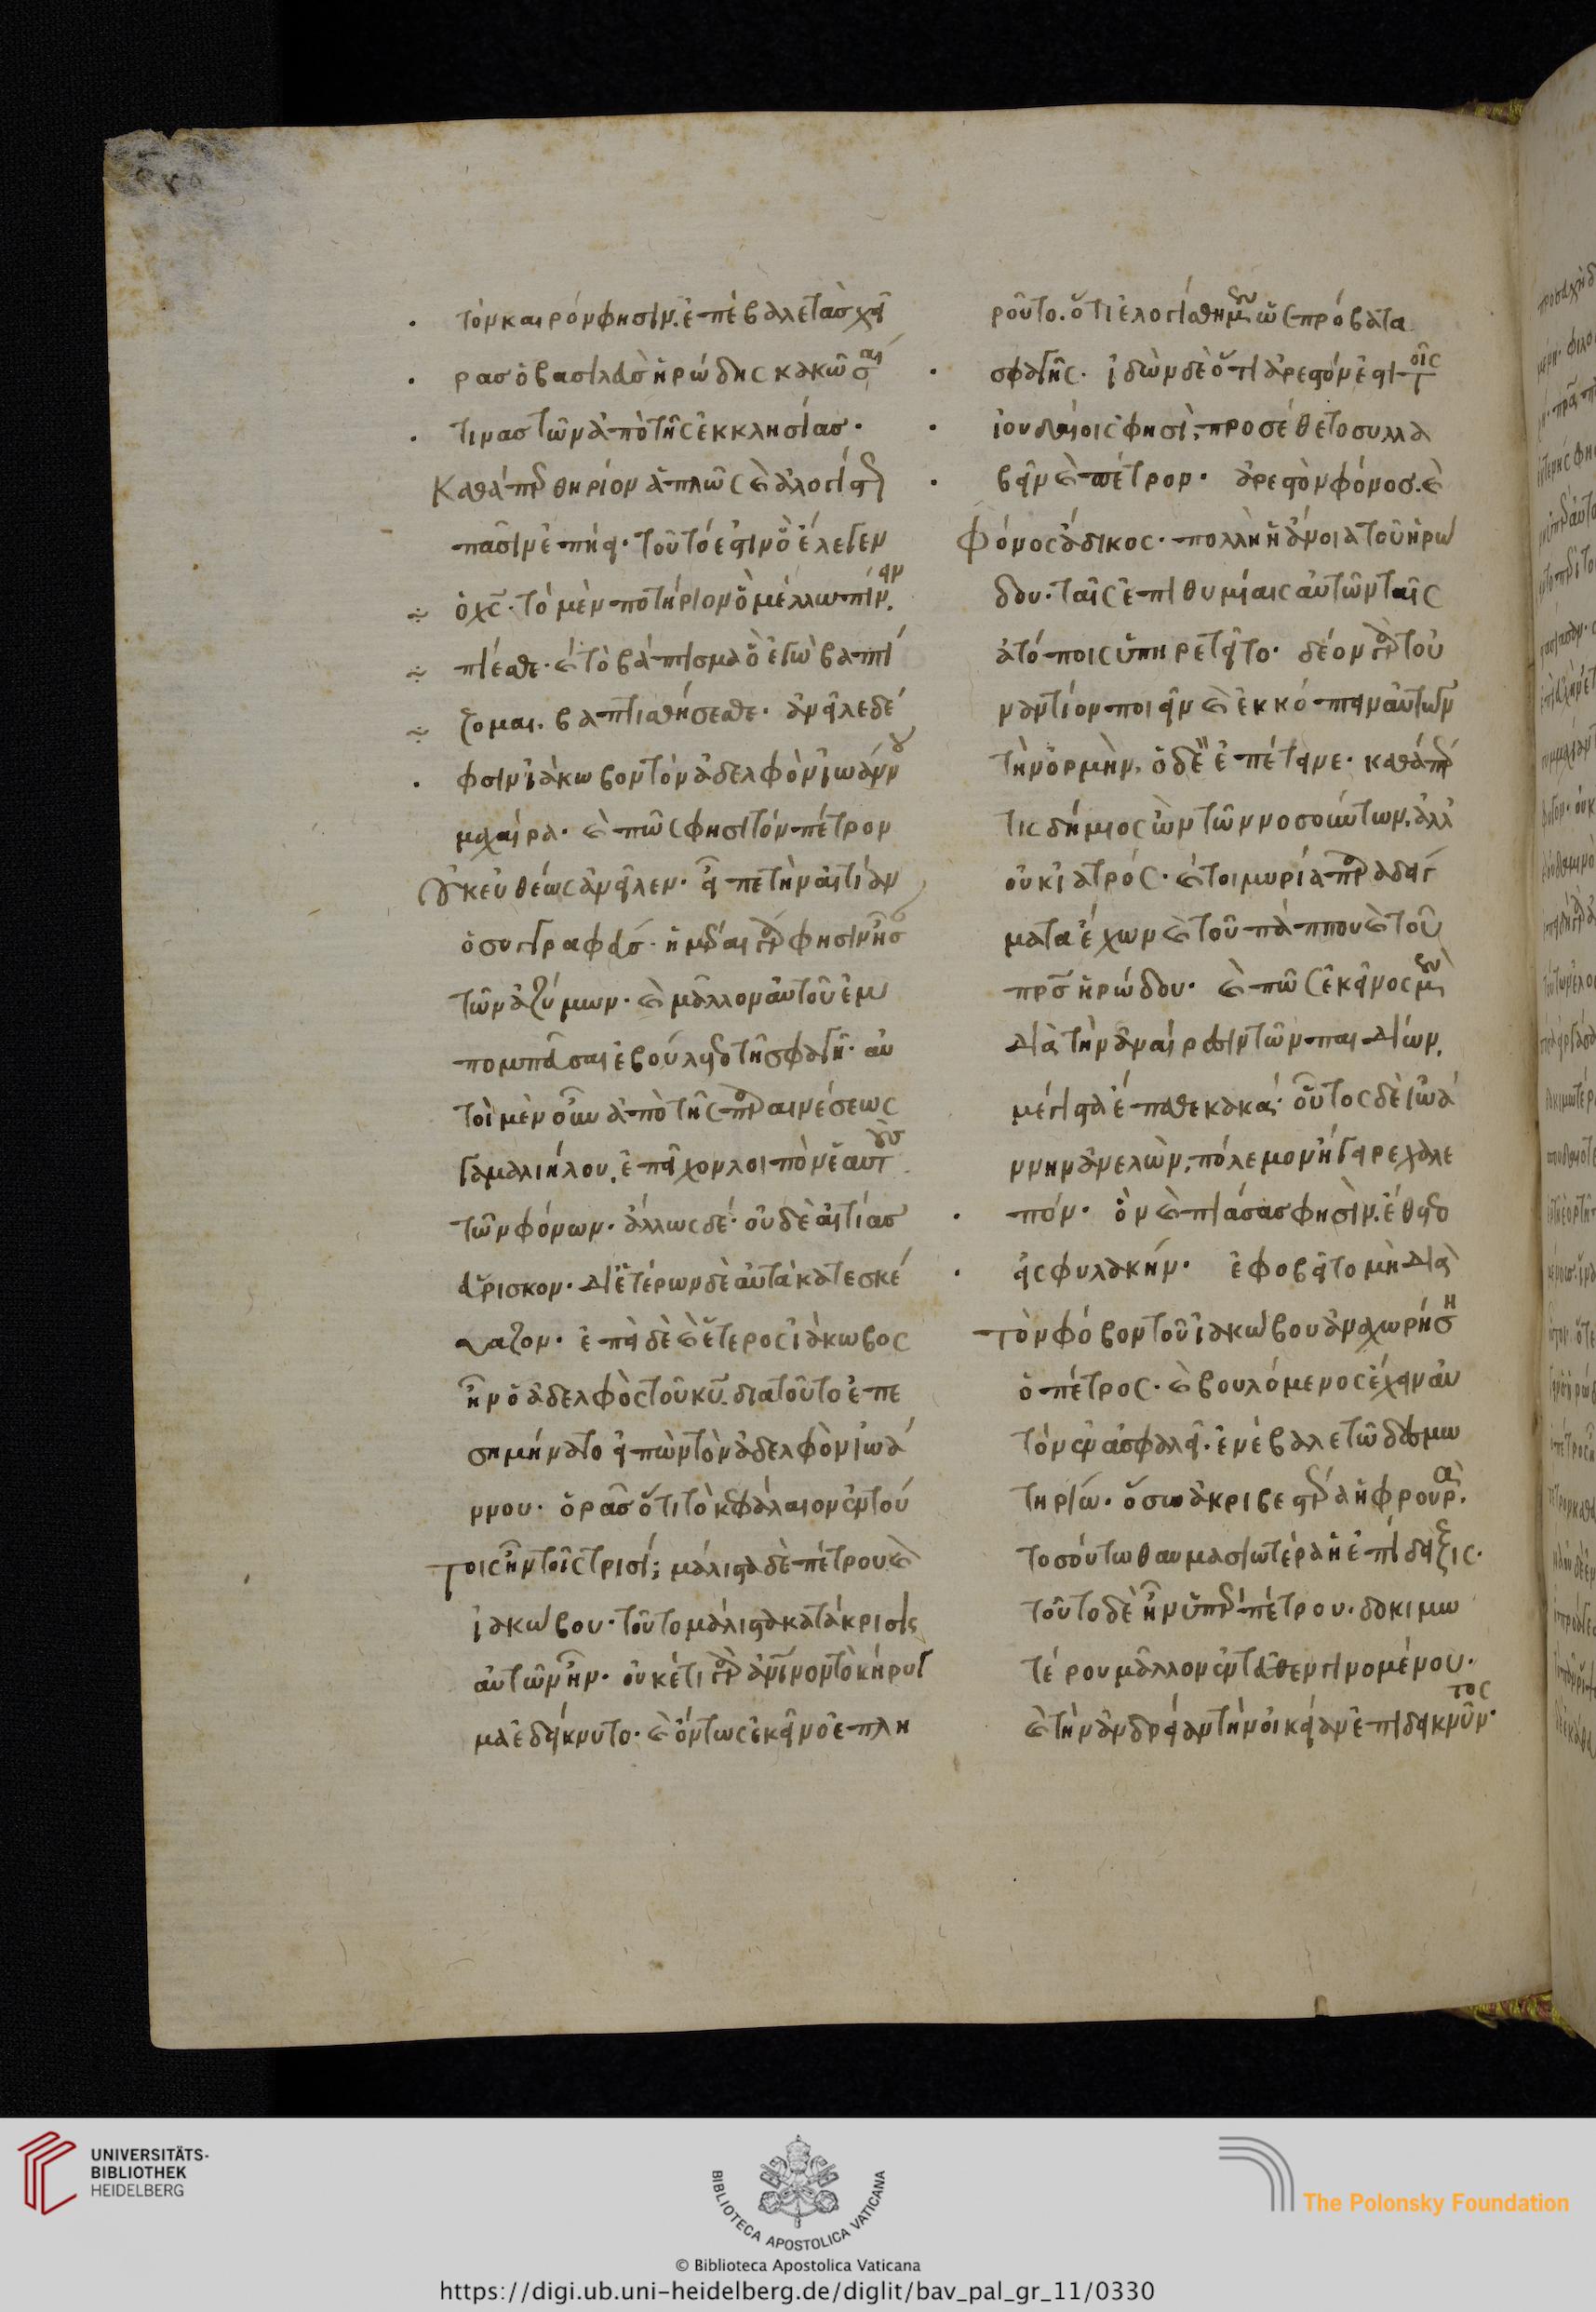 τὸν καιρόν φησιν. ἐπέβαλε τὰς χεῖ
ρας ὁ βασιλεὺς ἡρώδης κακῶσαί
τινας τῶν ἀπὸ τῆς ἐκκλησίας·
Καθάπερ θηρίον ἁπλῶς καὶ ἀλογίστ
πᾶσιν ἐπήει· τοῦτό ἐστιν ὃ ἔλεγεν
ὁ χς· τὸ μὲν ποτήριον ὃ μέλλω πίνειν.
πίεσθε· καὶ τὸ βάπτισμα ὃ ἐγὼ βαπτί
ζομαι. βαπτισθήσεσθε· ἀνεῖλε δέ
φσιν ἰάκωβον τὸν ἀδελφὸν ἰωάννου
μαχαίρα· καὶ πῶς φησὶ τὸν πέτρον
οὐκ εὐθέως ἀνεῖλεν· εἶπε τὴν αἰτίαν
ὁ συγγραφεύς· ἡμέραι γὰρ φησὶν ἦσ
τῶν ἀζύμων· καὶ μᾶλλον αὐτοῦ ἐμ
πομπεῦσαι ἐβούλετο τῆ σφαγῆ· αὐ
τοὶ μὲν οὖν ἀπὸ τῆς παραινέσεως
γαμαλιήλου, ἐπεῖχον λοιπὸν ἑαυτοὺσ
τῶν φόνων· ἄλλως δέ· οὐδὲ αἰτίας
εὕρισκον· δι ἑτέρων δὲ αὐτὰ κατεσκέ
υαζον· ἐπεὶ δὲ καὶ ἕτερος ἰάκωβος
ἦν ὁ ἀδελφὸς τοῦ κυ. διατοῦτο ἐπε
σημήνατο εἰπὼν τὸν ἀδελφὸν ἰωά
ννου· ὁρᾶς ὅτι τὸ κεφάλαιον ἐν τού
τοις ἦν τοῖς τρισί; μάλιστα δὲ πέτρου καὶ
ἰακώβου· τοῦτο μάλιστα κατάκρισις
αὐτῶν ἦν· οὐκέτι γὰρ ἀνθρώπινον τὸ κήρυγ
μα ἐδείκνυτο· καὶ ὄντως ἐκεῖνο ἐπλη
ροῦτο. ὅτι ἐλογίσθημεν ὡς πρόβατα
σφαγῆς· ἰδὼν δὲ ὅτι ἀρεστόν ἐστι τοῖς
ἰουδαίοις φησὶ, προσέθετο συλλα
βεῖν καὶ πέτρον· ἀρεστὸν φόνος. καὶ
φόνος ἄδικος· πολλὴ ἡ ἄνοια τοῦ ἡρώ
δου· ταῖς ἐπιθυμίαις αὐτῶν ταῖς
ἀτόποις ὑπηρετεῖτο· δέον γὰρ τοὐ
ναντίον ποιεῖν καὶ ἐκκόπτειν αὐτῶν
τὴν ὁρμὴν, ὁ δὲ ἐπέτεινε· καθάπερ
τις δήμιος ὢν τῶν νοσούντων, ἀλλ
οὐκ ἰατρός· καίτοι μυρία παραδείγ
ματα ἔχων καὶ τοῦ πάππου καὶ τοῦ
πρς ἡρώδου· καὶ πῶς ἐκεῖνος μὲν
διὰ τὴν ἀναίρεσιν τῶν παιδίων,
μέγιστα ἔπαθε κακά· οὗτος δὲ ἰωά
ννην ἀνελὼν, πόλεμον ἤγειρε χαλε
πόν· ὃν καὶ πιάσας φησὶν. ἔθετο
εἰς φυλακήν· ἐφοβεῖτο μὴ διὰ
τὸν φόβον τοῦ ἰακώβου ἀναχωρήση
ὁ πέτρος· καὶ βουλόμενος ἔχειν αὐ
τὸν ἐν ἀσφαλεῖ· ἐνέβαλε τῶ δεσμω
τηρίω· ὅσω ἀκριβεστέρα ἡ φρουρὰ.
τοσούτω θαυμασιωτέρα ἡ ἐπίδειξις·
τοῦτο δὲ ἦν ὑπὲρ πέτρου. δοκιμω
τέρου μᾶλλον ἐντεῦθεν γινομένου·
καὶ τὴν ἀνδρείαν τὴν οἰκείαν ἐπιδεικνῦντος·
UNIVERSITÄTS-
BIBLIOTHEK
HEIDELBERG
BIBLIOTECA APOSTOLICA VATICANA
The Polonsky Foundation
© Biblioteca Apostolica Vaticana
https://digi.ub.uni-heidelberg.de/diglit/bav_pal_gr_11/0330